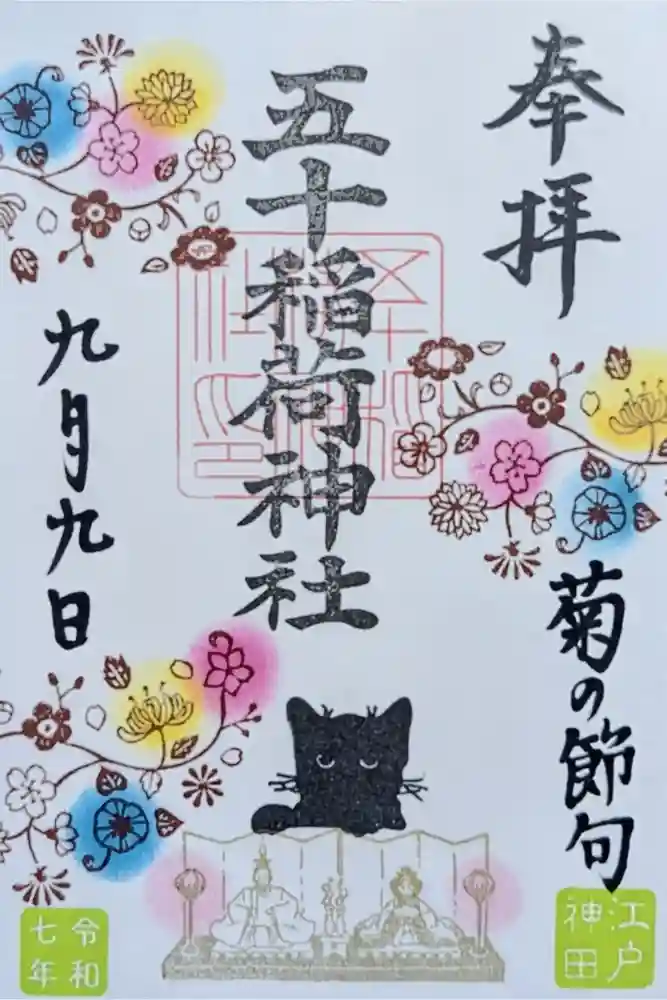 奉拝
菊の節句
江戸
神田
五十稲荷神社
九月九日
令和
七年